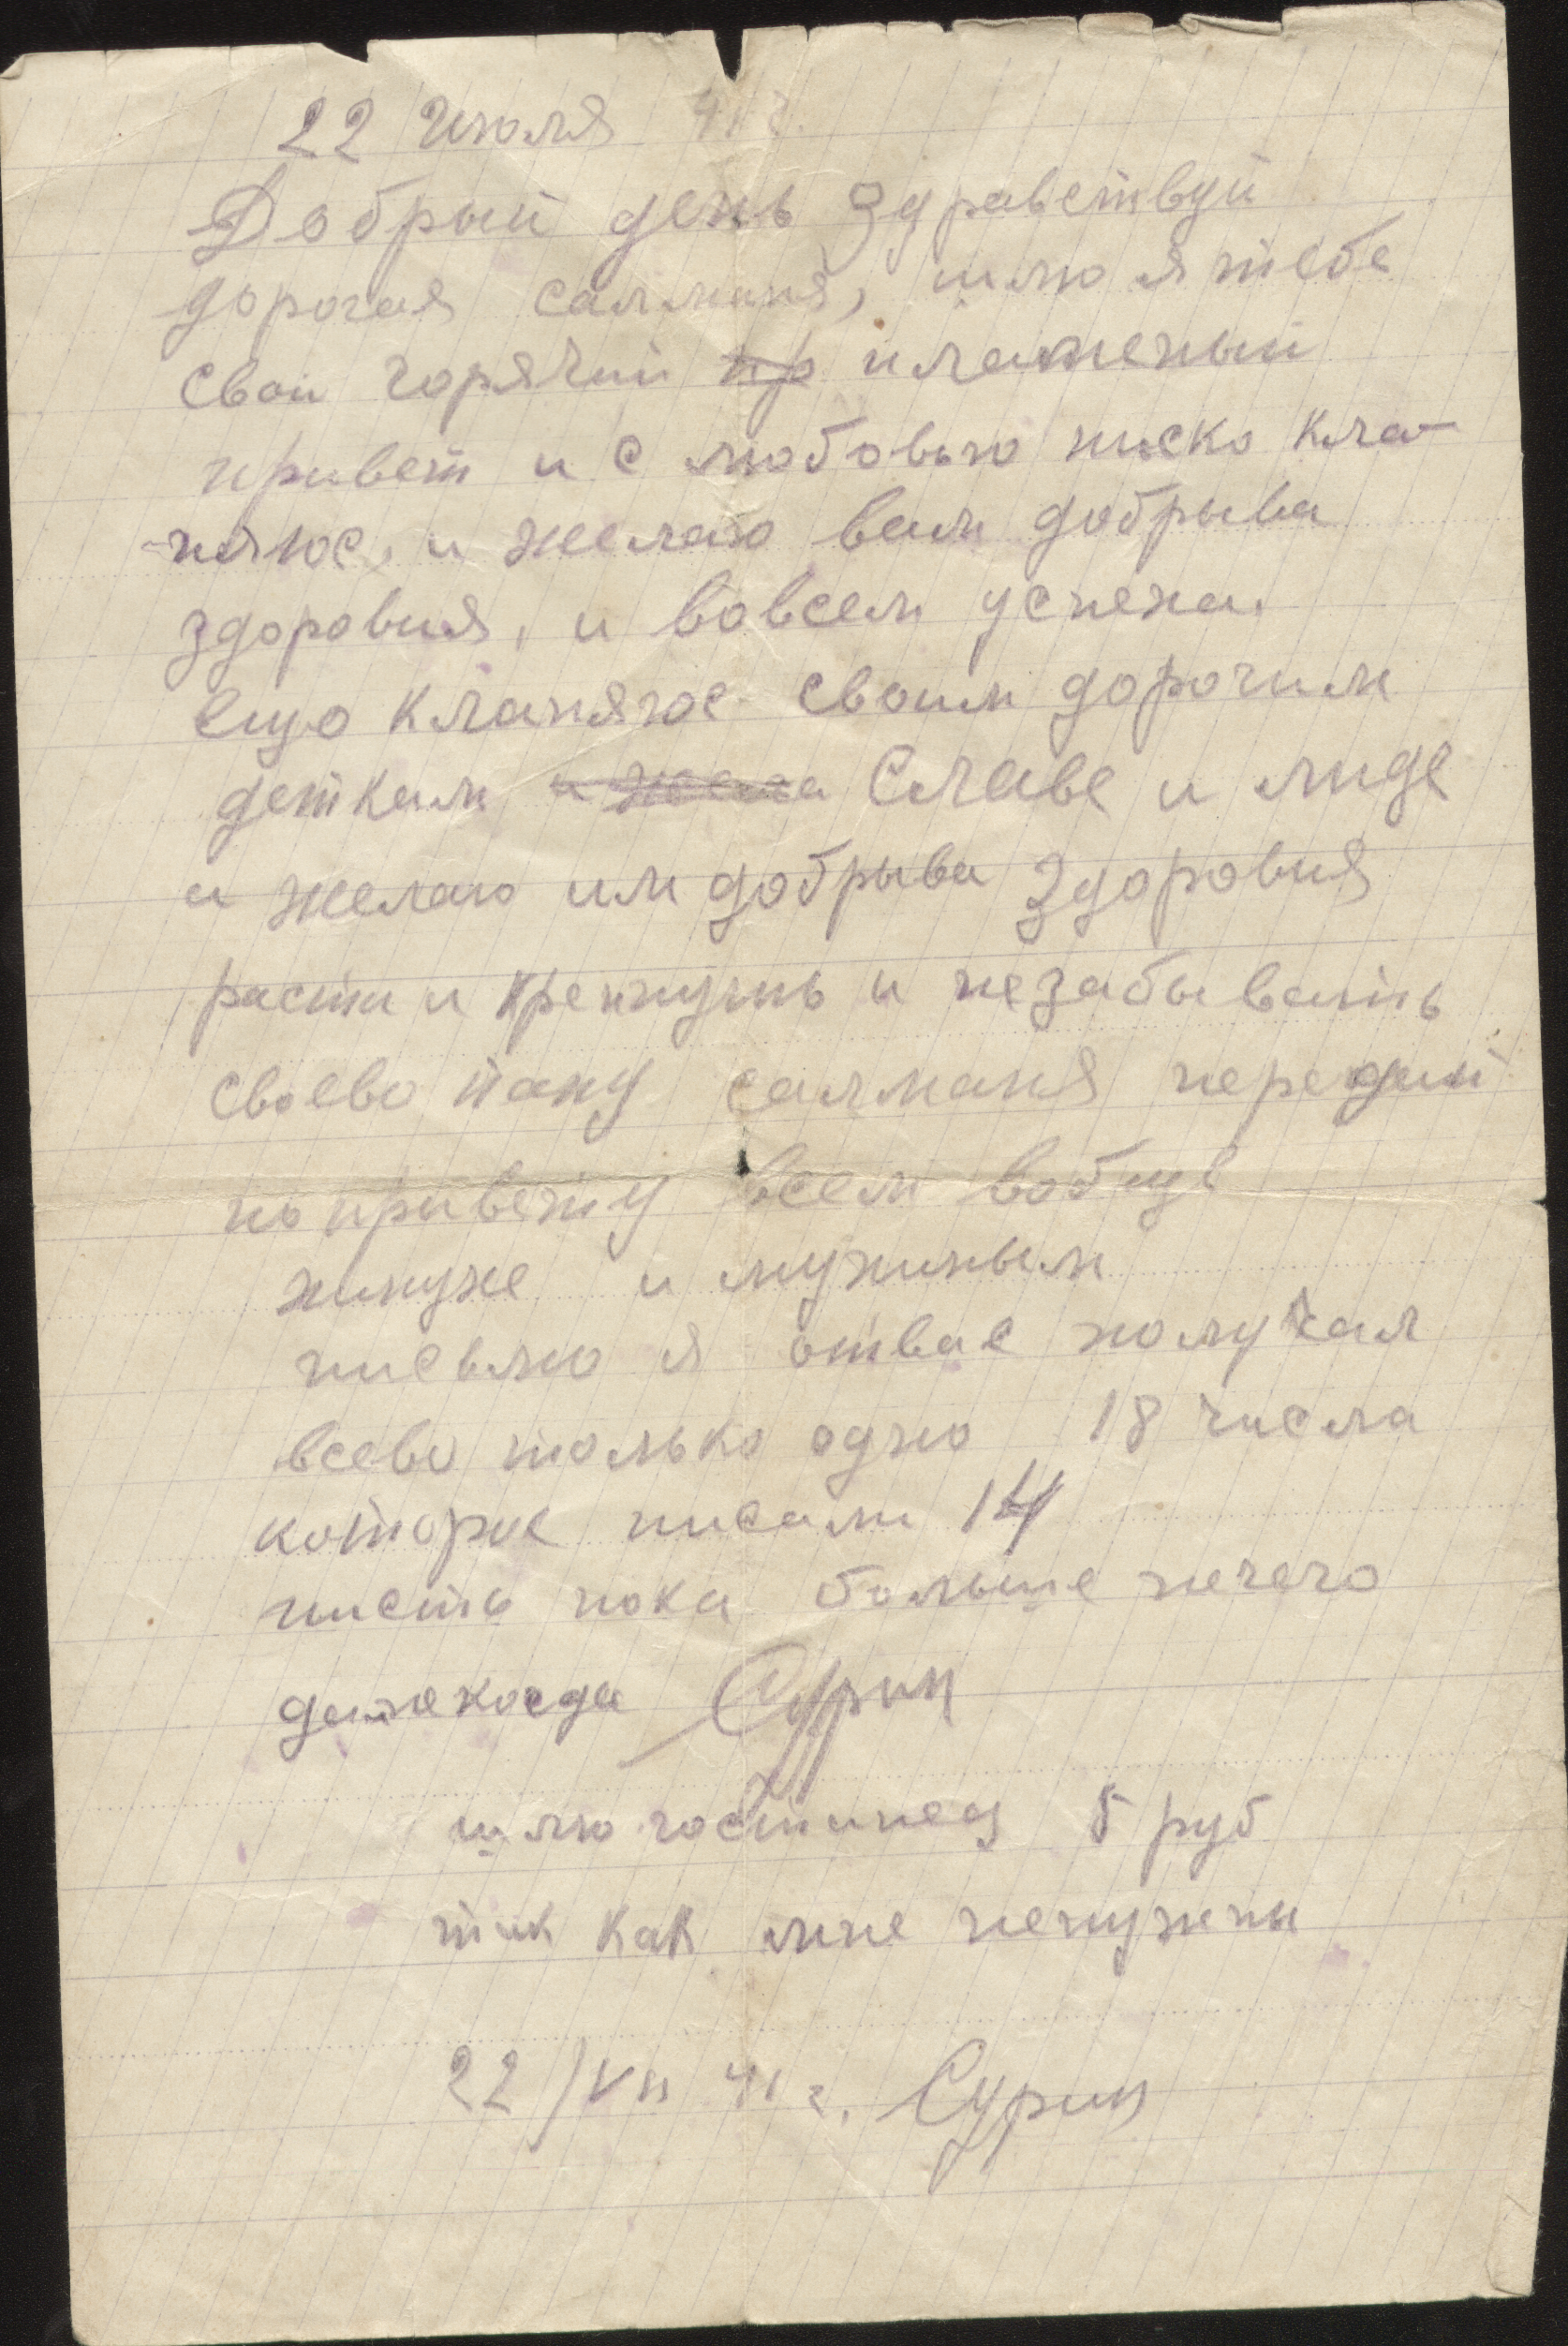 22 июля 41 г.
Добрый день Здраветвуй
дорогая салманя, шлю я тебе
свой горячий пр пламеный
привет и с любовью ниско кла-
-няюс, и желаю вам добрыва
здоровия, и вовсем успеха.
ещо кланяюс своим дорогим
деткам и жела Славе и лиде
и желаю им добрыва здоровия
расти и крепнуть и незабывать
своево папу салманя передай
по привету всем вобще
и нужным
письмо я отвас получал
всево только одно 18 числа
которое писали 14
писть пока больше нечего
Сурин
шлю гостинец 5 руб
так как мне ненужны
22/VII 41 г. Сурин